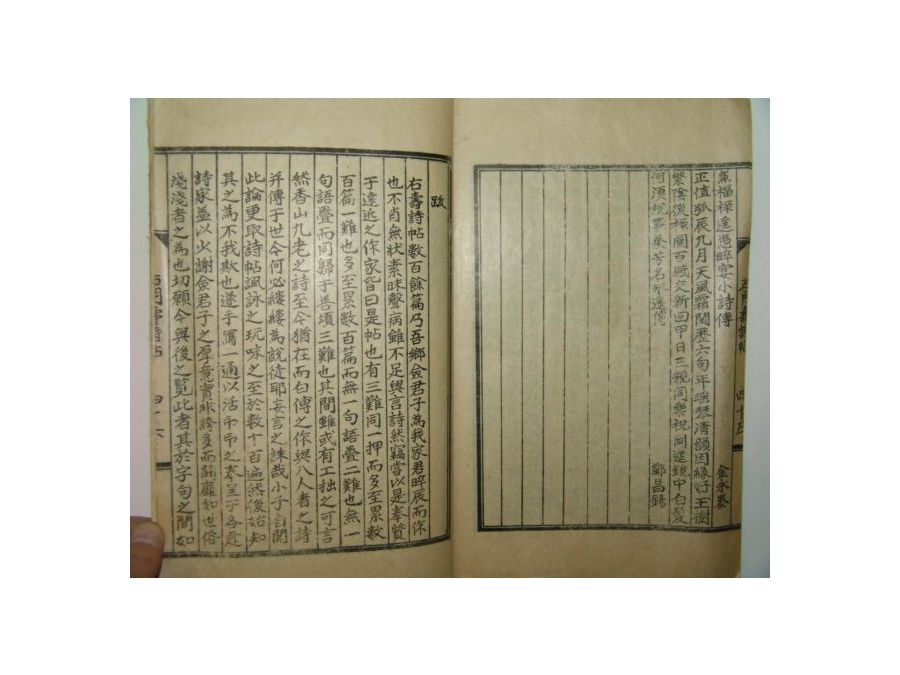 無福祿遙憑晬宴小詩傳 金永泰
正值弧辰九月天風霜閱歷六旬年瑤琴清韻因緣好玉樹
繁陰後 百感交新回甲日三親同樂祝 筵鏡中白髮
河 事樂芳名永遠傳 鄭昌錫
四十五
跋
右壽詩帖數百餘篇乃吾鄉僉君子為我家君晬辰而作
也不肖無狀素昧聲病雖不足與言詩然竊嘗以是奉質
于遠近之作家皆曰是帖也有三難同一押而多至累數
百篇一難也多至累數百篇而無一句語疊二難也無一
句語疊而同歸于善頌三難也其間雖或有工拙之可言
然香山九老之詩至今猶在而白傅之作與八人者之詩
並傳于世今何必縷縷為說徒耶妄言之誅哉小子旣聞
此論更取詩帖諷詠之玩味之至於數十百遍然後始知
其之為不我欺也遂手寫一通以活印印之奉呈于各
詩家盖以火謝僉君子之厚意實非誇多而鬪靡如也倍
淺淺者之為也切願今與後之覽此者其於字句之間如
四十六